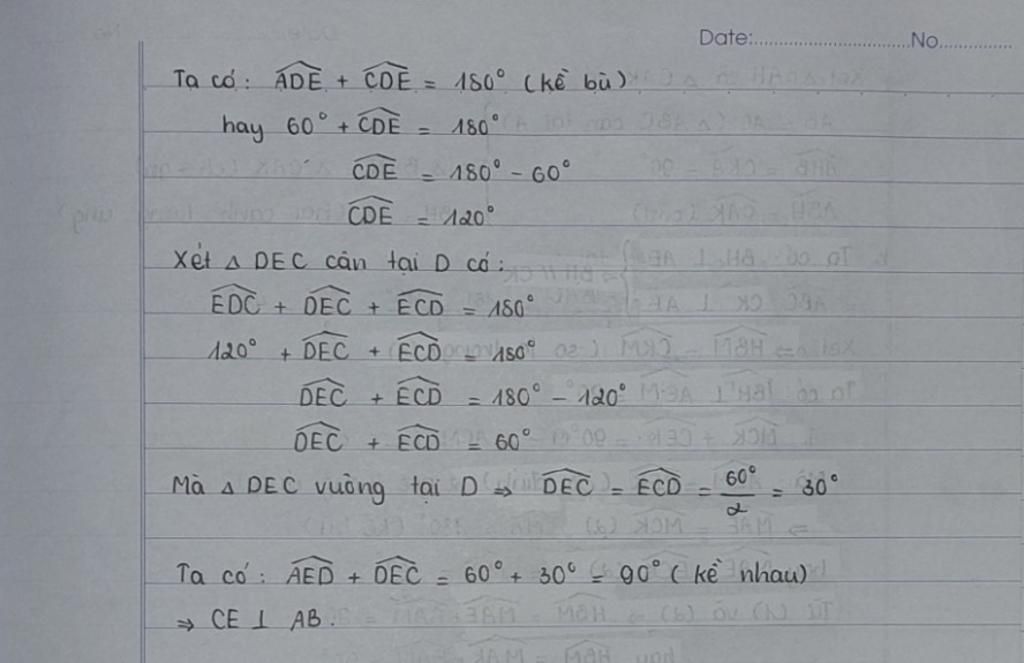 Date:..................................No................
Ta có: \widehat{ADE} + \widehat{CDE} = 180° (kề bù)
hay 60° + \widehat{CDE} = 180°
\widehat{CDE} = 180° - 60°
\widehat{CDE} = 120°
Xét △ DEC cân tại D có:
\widehat{EDC} + \widehat{DEC} + \widehat{ECD} = 180°
120° + \widehat{DEC} + \widehat{ECD} = 180°
\widehat{DEC} + \widehat{ECD} = 180° - 120°
\widehat{DEC} + \widehat{ECD} = 60°
Mà △ DEC vuông tại D ⇒ \widehat{DEC} = \widehat{ECD} = \frac{60°}{2} = 30°
Ta có: \widehat{AED} + \widehat{DEC} = 60° + 30° = 90° (kề nhau)
⇒ CE ⊥ AB.